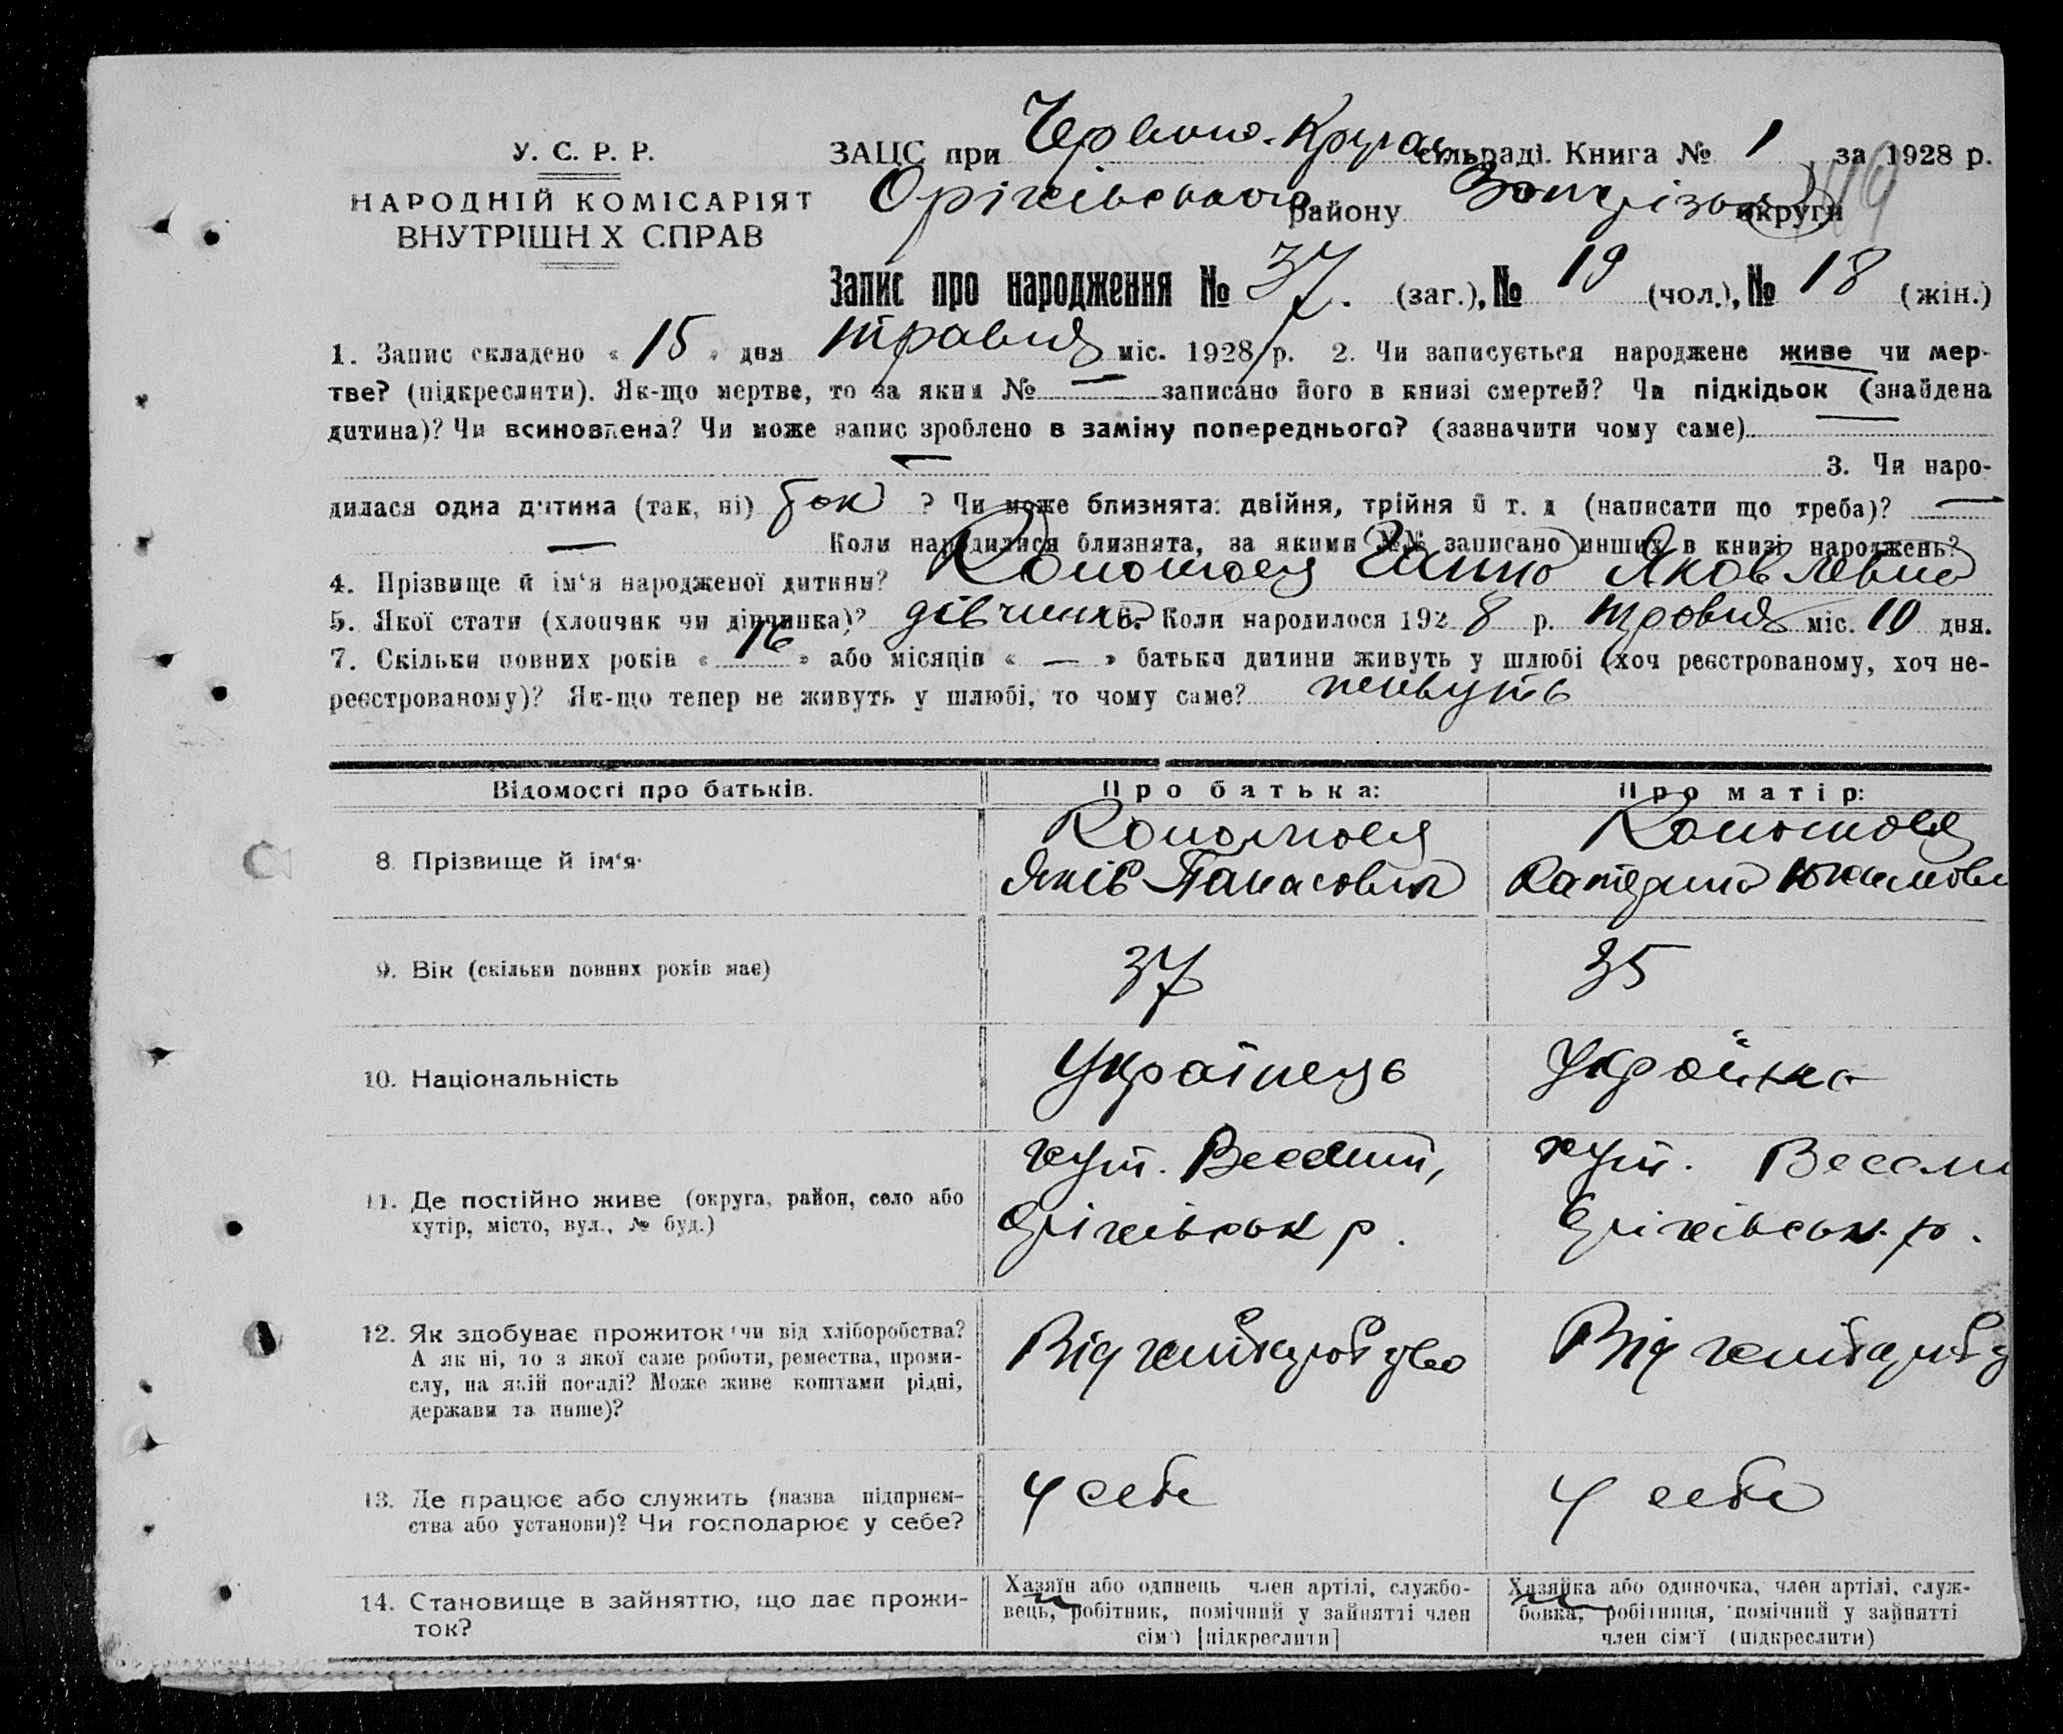 У. С. Р. Р.
НАРОДНІЙ КОМІСАРІЯТ
ВНУТРІШН Х СПРАВ
ЗАЦС при Червоно-Кругл сільраді. Книга № 1 за 1928 р.
Оріхівського району округи
Запис про народження № 37. (заг.), № 19 (чол.), № 18 (жін.)
1. Запис складено « 15 » дня травня міс. 1928 р. 2. Чи записується народжене живе чи мер-
тве? (підкреслити). Як-що мертве, то за яким № — записано його в книзі смертей? Чи підкідьок (знайдена
дитина)? Чи всиновлена? Чи може запис зроблено в заміну попереднього? (зазначити чому саме) —
— 3. Чи наро-
дилася одна дитина (так, ні) так ? Чи може близнята: двійня, трійня й т. д (написати що треба)? —
— Коли народилися близнята, за якими №№ записано инших в книзі народжень?
4. Прізвище й ім'я народженої дитини? Ганна Яковлевна
5. Якої стати (хлопчик чи дівчинка)? дівчинка 6. Коли народилося 1928 р. травня міс. 10 дня.
7. Скільки повних років « 16 » або місяців « — » батьки дитини живуть у шлюбі (хоч реєстрованому, хоч не-
реєстрованому)? Як-що тепер не живуть у шлюбі, то чому саме? живуть
Відомості про батьків.
Про батька:
Про матір:
8. Прізвище й ім'я.
Яків Панасович
Катерина
9. Вік (скільки повних років має)
37
35
10. Національність
Українець
Українка
11. Де постійно живе (округа, район, село або
хутір, місто, вул., № буд.)
хут. Веселий,
Оріхівськ р.
хут. Весели
Оріхівськ. р.
12. Як здобуває прожиток чи від хліборобства?
А як ні, то з якої саме роботи, ремества, проми-
слу, на якій посаді? Може живе коштами рідні,
держави та инше)?
Від хліборобства
Від хлібороб
13. Де працює або служить (назва підприєм-
ства або установи)? Чи господарює у себе?
У себе
У себе
14. Становище в зайняттю, що дає прожи-
ток?
Хазяїн або одинець член артілі, службо-
вець, робітник, помічний у зайнятті член
сім'ї [підкреслити]
Хазяйка або одиночка, член артілі, служ-
бовка, робітниця, помічний у зайнятті
член сім'ї (підкреслити)